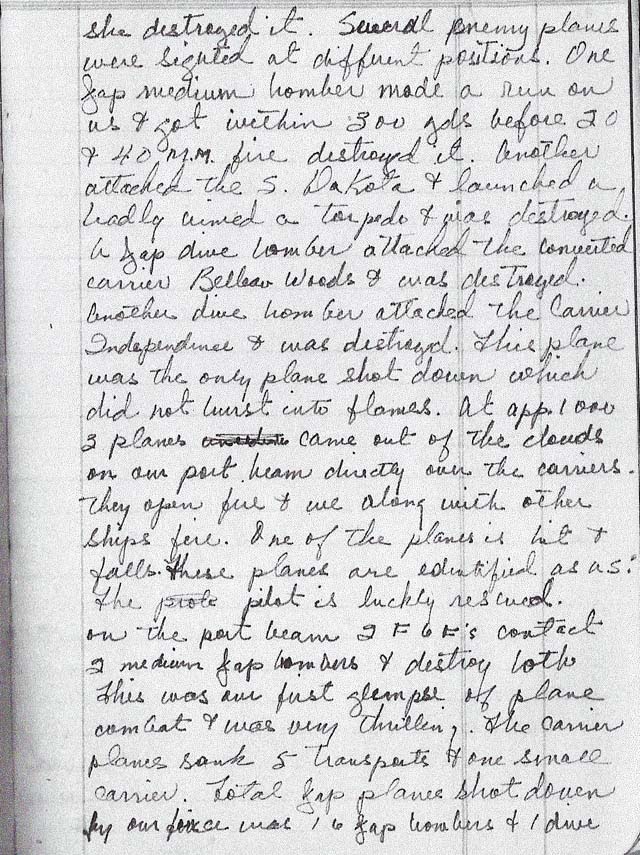 she destroyed it. Several enemy planes
were sighted at diffrent positions. One
Jap medium bomber made a run on
us & got within 300 yds before 20
& 40 M.M. fire destroyed it. Another
attacked the S. Dakota & launched a
badly aimed a torpedo & was destroyed.
A Jap dive bomber attacked the converted
carrier Belleau Woods & was destroyed.
Another dive bomber attacked the Carrier
Independence & was destroyed. This plane
was the only plane shot down which
did not burst into flames. At app. 1000
3 planes came out of the clouds
on our port beam directly over the carriers.
They open fire & we along with other
ships fire. One of the planes is hit &
falls. These planes are edintified as U.S.
The pilot is luckly rescued.
on the port beam 2 F6F's contact
2 medium Jap bombers & destroy both
This was our first glimpse of plane
combat & was very thrillen,. The carrier
planes sank 5 transports & one small
carrier. Total Jap planes shot down
by our force was 16 Jap bombers & 1 dive